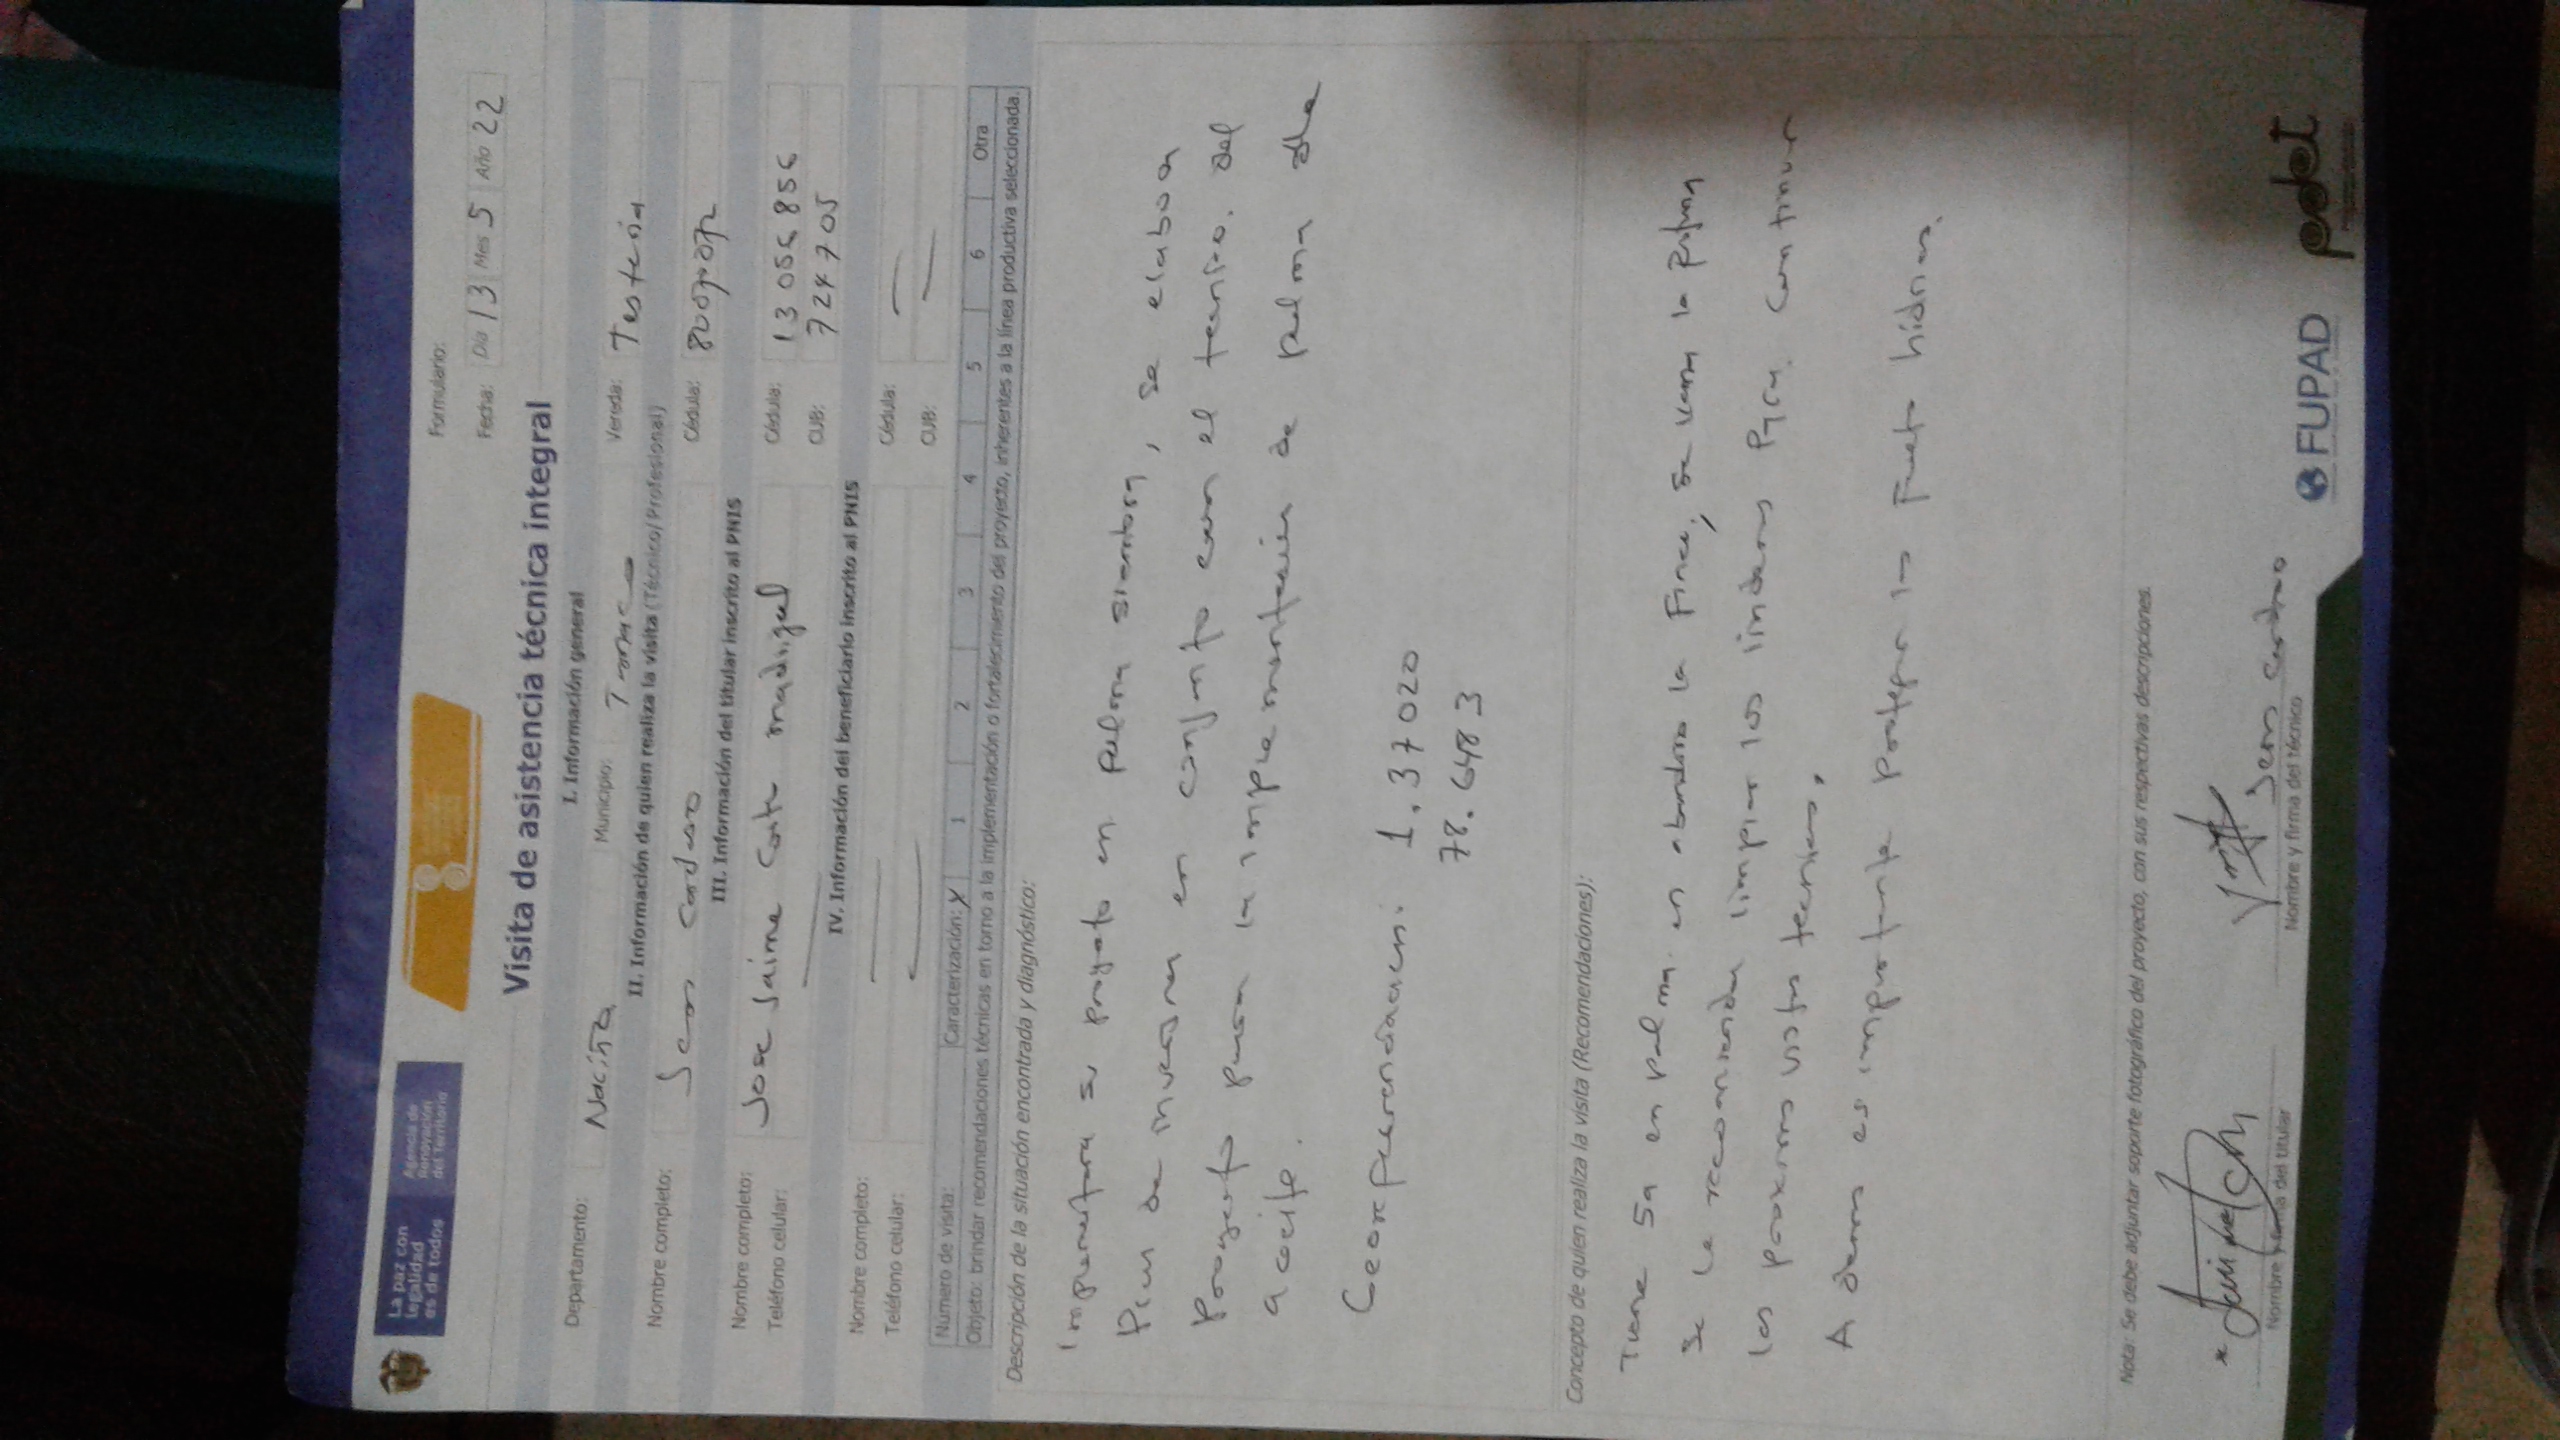 La paz con
legalidad
es de todos
Agencia de
Renovación
del Territorio
Formulario:
Fecha: Día 13 Mes 5 Año 22
Visita de asistencia técnica integral
I. Información general
Departamento: Nariño Municipio: Tumaco Vereda: Testeria
II. Información de quien realiza la visita (Técnico/Profesional)
Nombre completo: Cédula:
III. Información del titular inscrito al PNIS
Nombre completo: Jose Jaime Corte madrigal Cédula: 13056856
Teléfono celular: CUB: 724705
IV. Información del beneficiario inscrito al PNIS
Nombre completo: Cédula:
Teléfono celular: CUB:
Número de visita: Caracterización: X 1 2 3 4 5 6 Otra
Objeto: brindar recomendaciones técnicas en torno a la implementación o fortalecimiento del proyecto, inherentes a la línea productiva seleccionada.
Descripción de la situación encontrada y diagnóstico:
su proyecto en palma , se elabora
Plan de en conjunto con el tecnico. del
Proyecto para la implementación de palma de
aceite.
1.37020
78.64483
Concepto de quien realiza la visita (Recomendaciones):
Tiene 5a en palma. en la Finca, la
se le recomienda limpiar los linderos para continuar
las proximas tecnicas.
Ademas es importante proteger la Fuente hidrica.
Nota: Se debe adjuntar soporte fotográfico del proyecto, con sus respectivas descripciones.
Nombre y firma del titular
Nombre y firma del técnico
FUPAD
pdet